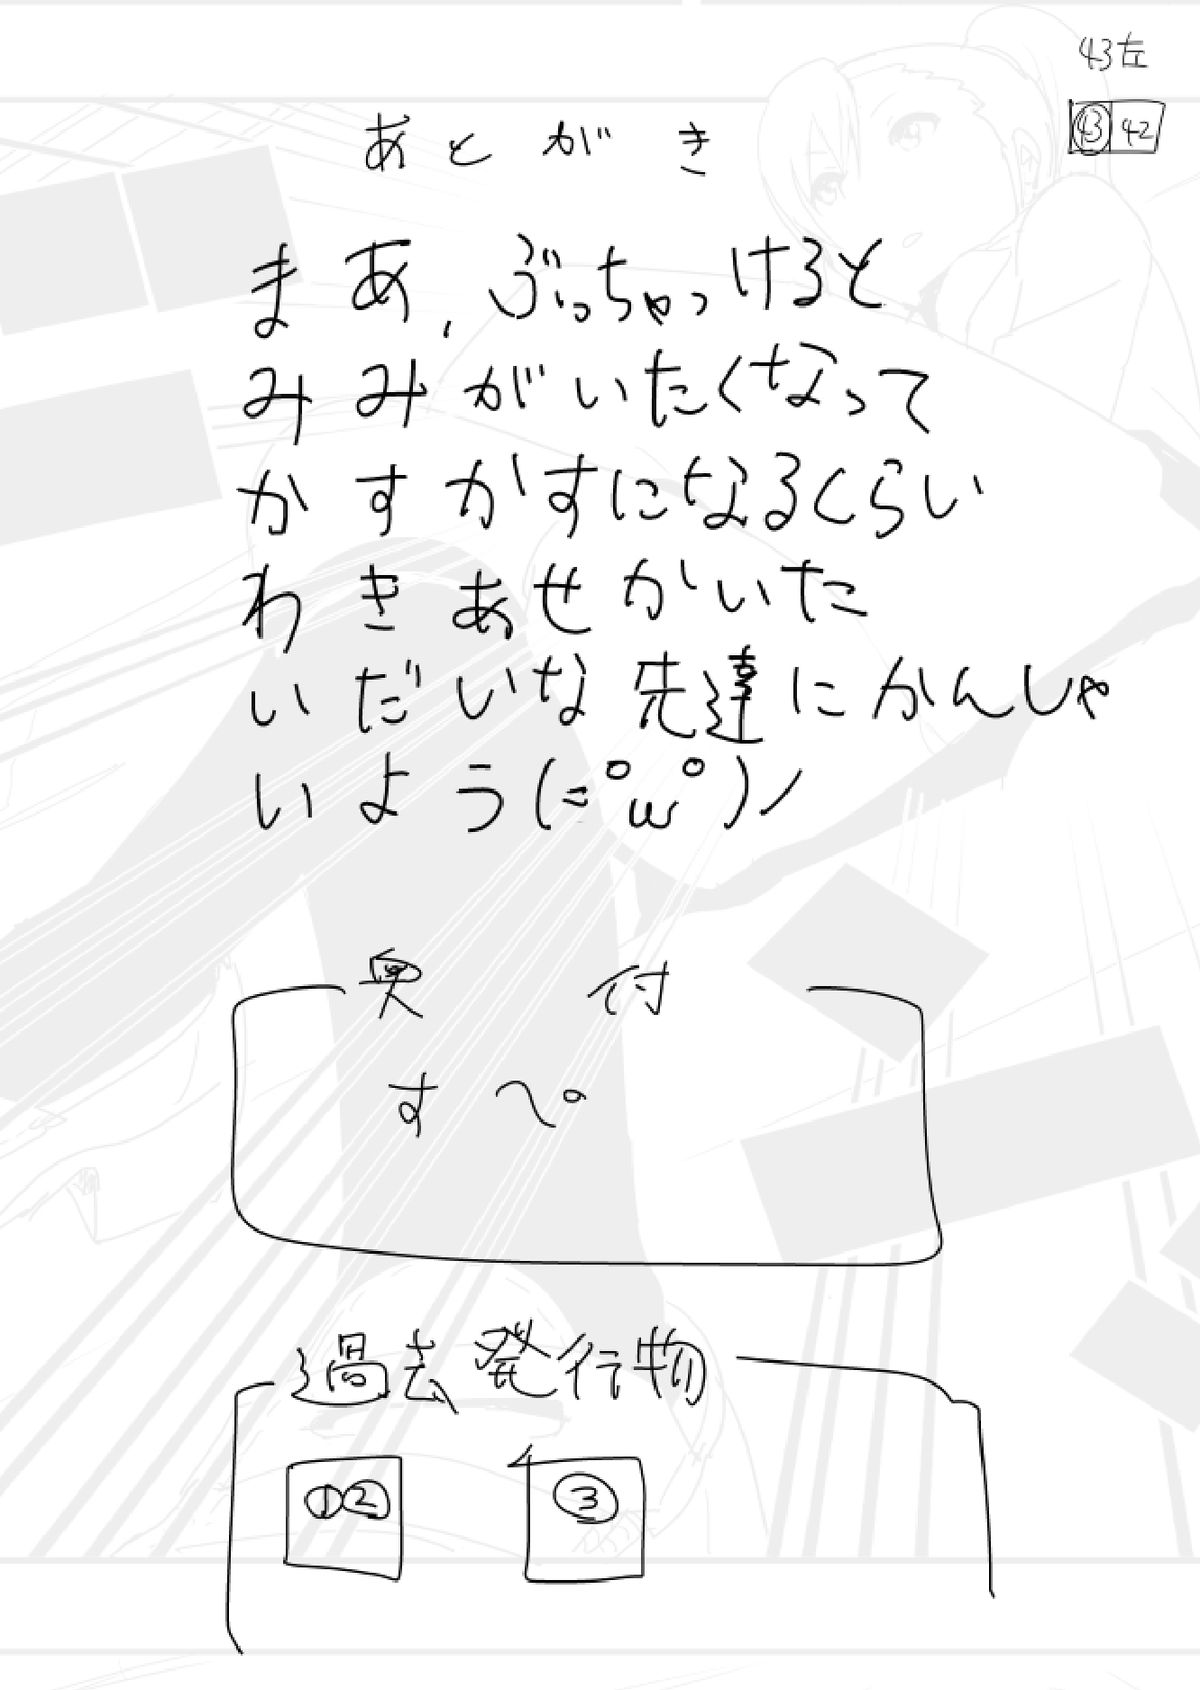 43左
43 42
あとがき
まあ、ぶっちゃっけると
みみがいたくなって
かすかすになるくらい
わきあせかいた
いだいな先達にかんしゃ
いよう(=゚ω゚)ノ
奥付
すぺ
過去発行物
①② ③